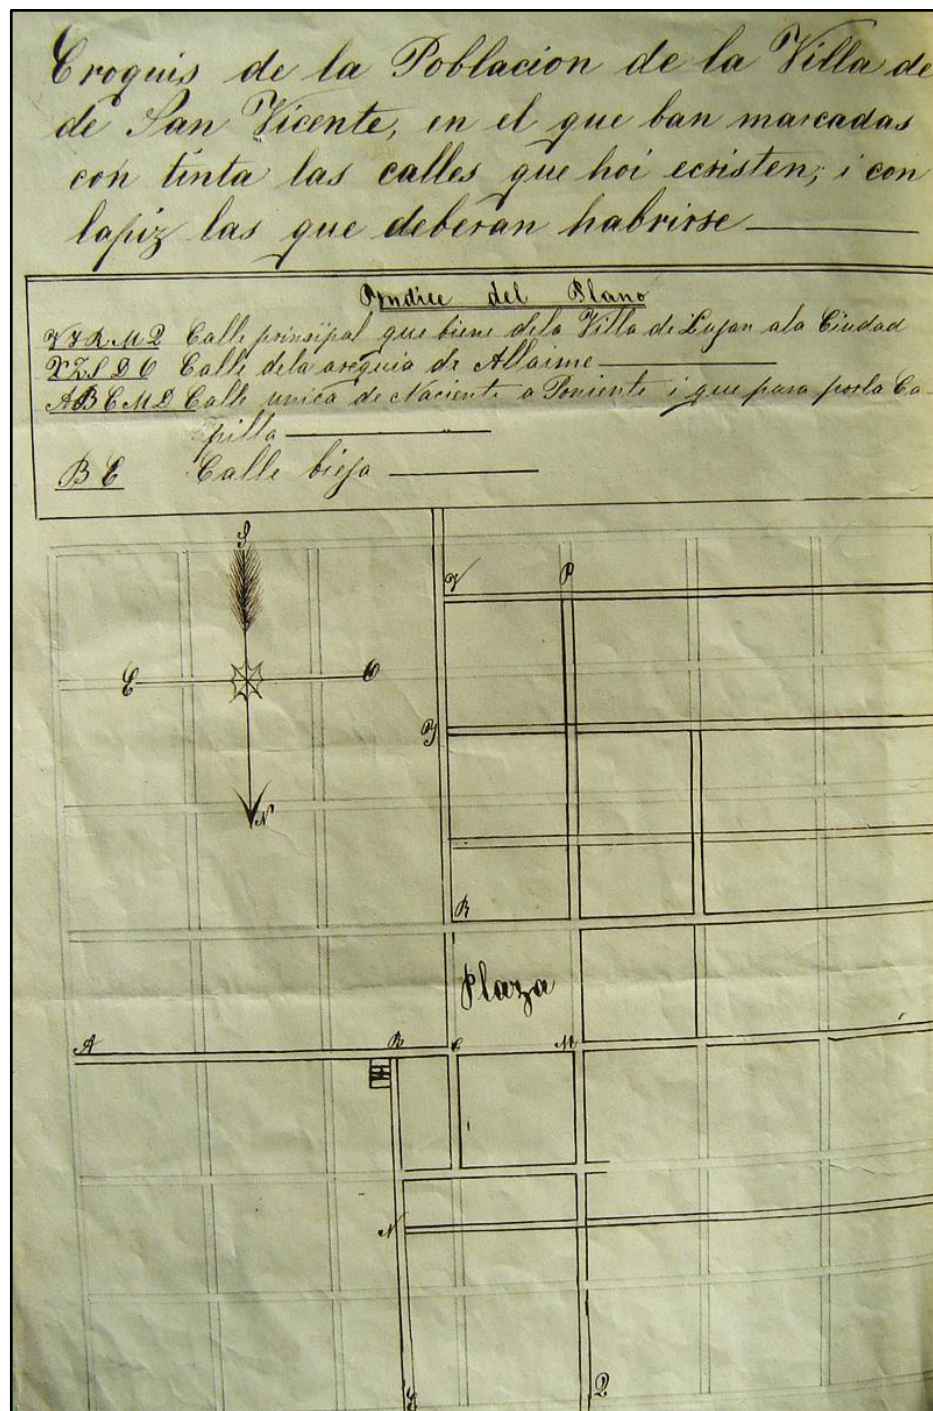 Croquis de la Poblacion de la Villa de
de San Vicente, en el que ban marcadas
con tinta las calles que hoi ecsisten; i con
lapiz las que deberan habrirse
Yndice del Plano
Calle prinsipal que biene dela Villa de Lujan ala Ciudad
Calle dela asequia de Allaime
A B C M D Calle unica de Naciente a Poniente i que pasa porla Ca-
pilla
B E Calle bieja
S
Y P
E O
Y
N
R
Plaza
A B C M
N
Q